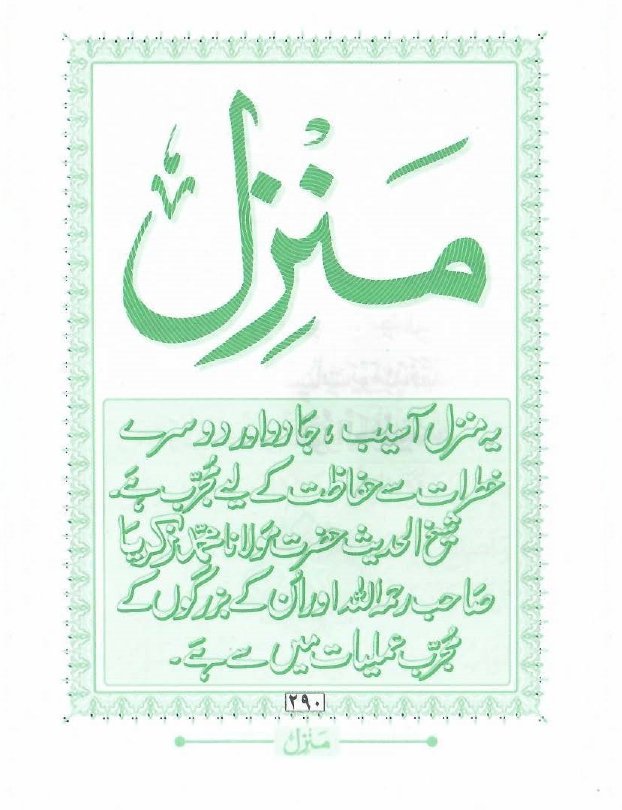 مَنْزِل
یہ منزل آسیب، جادو اور دوسرے
خطرات سے حفاظت کے لیے مُجرّب ہے۔
شیخ الحدیث حضرت مولانا محمد زکریا
صاحب رحمہ اللہ اور اُن کے بزرگوں کے
مُجرّب عملیات میں سے ہے۔
۲۹۰
مَنْزِل